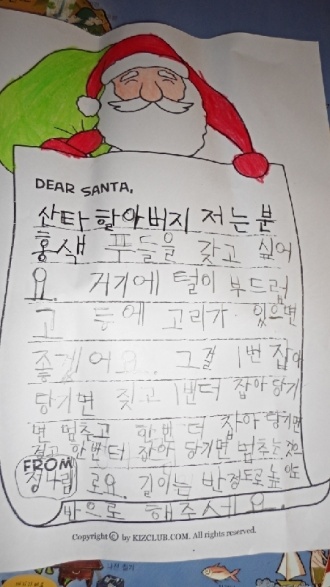 DEAR SANTA,
산타 할아버지 저는 분
홍색 푸들을 갖고 싶어
요. 거기에 털이 부드럽
고 등에 고리가 있으면
좋겠어요. 그걸 1번 잡아
당기면 짖고 1번더 잡아 당기
면 멈추고 한번 더 잡아 당기면
짖고 한번 더 잡아 당기면 멈추는것으
FROM
로요. 길이는 반 정도로 높
으로 해주세요.
Copyright © by KIZCLUB.COM. All rights reserved.